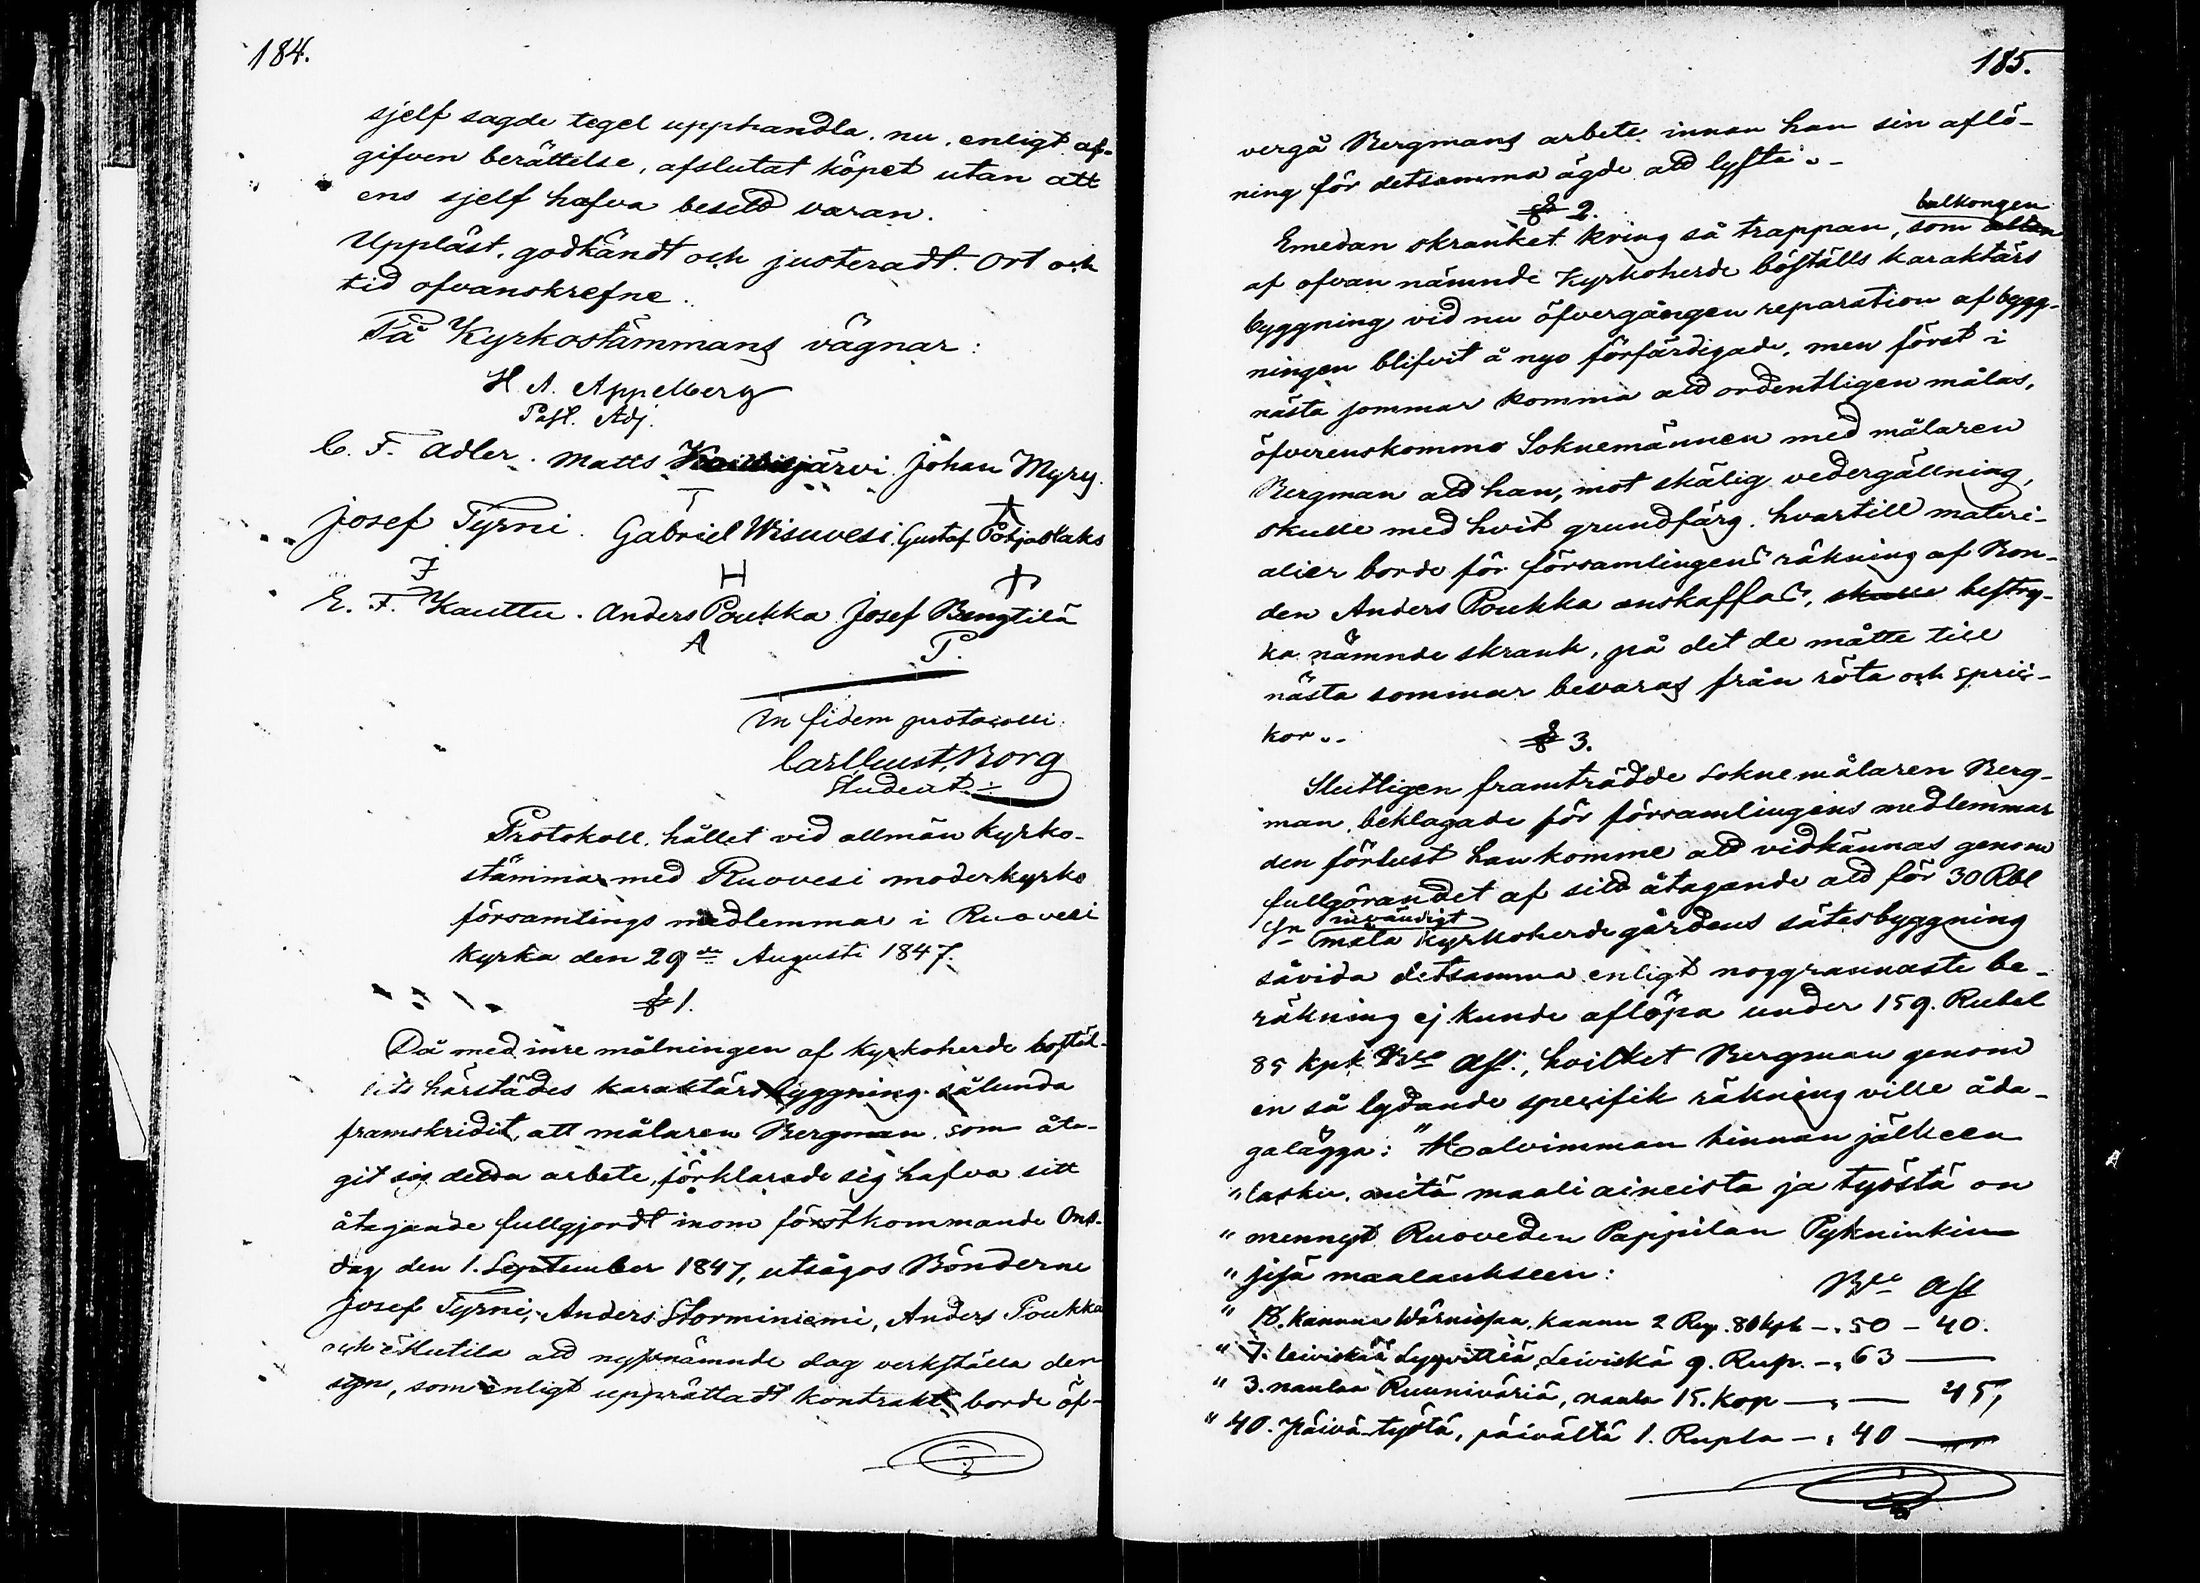 184.
sjelf sagde tegel upphandla, nu, enligt af-
gifven berättelse, afslutat köpet utan att
ens sjelf hafva besett varan.
Uppläst, godkändt och justeradt. Ort och
tid ofvanskrefne.
På Kyrkostämmans vägnar:
H. A. Appelberg
Past. Adj.
C. F. Adler. Matts järvi. Johan Myry.
T
Josef Tyrni. Gabriel Wisuvesi. Gustaf Pohjaslaks
F H
E. F. Kauttu. Anders Poukka Josef Bengtilä
A P.
In fidem protocolli
Carl Gust. Borg
Student
Protokoll, hållet vid allmän kyrko-
stämma med Ruovesi moderkyrko
församlings medlemmar i Ruovesi
kyrka den 29de Augusti 1847.
§ 1.
Då med inre målningen af kyrkoherde bostäl-
lets härstädes karaktärsbyggning sålunda
framskridit, att målaren Bergman, som åta-
git sig detta arbete, förklarade sig hafva sitt
åtagande fullgjordt inom förstkommande Ons-
dag den 1. September 1847, utsågos Bönderne
Josef Tyrni, Anders Storminiemi, Anders Poukka
och Mutila att nyssnämnde dag verkställa den
syn, som enligt upprättadt kontrakt borde öf-
185.
vergå Bergmans arbete innan han sin aflö-
ning för detsamma ägde att lyfta.
§ 2.
balkongen
Emedan skranket kring så trappan, som
af ofvan nämnde Kyrkoherde böställs karaktärs
byggning vid nu öfvergången reparation af bygg-
ningen blifvit å nyo förfärdigade, men först i
nästa sommar komma att ordentligen målas,
öfverenskommo Soknemännen med målaren
Bergman att han, mot skälig vedergällning,
skulle med hvit grundfärg, hvartill materi-
alier borde för församlingens räkning af Bon-
den Anders Poukka anskaffas, skulle bestry-
ka nämnde skrank, på det de måtte till
nästa sommar bevaras från röta och spric-
kor.
§ 3.
Slutligen framträdde Soknemålaren Berg-
man, beklagade för församlingens medlemmar
den förlust han komme att vidkännas genom
fullgörandet af sitt åtagande att för 30 Rbl
invändigt
Sr måla Kyrkoherdegårdens sätesbyggning
såvida detsamma enligt noggrannaste be-
räkning ej kunde aflöpa under 159. Rubel
85 kpk Bco Ass., hvilket Bergman genom
en så lydande specifik räkning ville åda-
galägga: "Halvimman hinnan jälkeen
" lasku, mitä maali aineista ja työstä on
" mennyt Ruoveden Pappilan Pykninkin
" sisä maalaukseen:
Bco Ass
" 18. kannua Wärnissaa, kannu 2 Rup. 80 kpk — " 50 – 40.
" 7. leiviskää Lyyvittiä, Leiviskä 9. Rup. — " 63 —
" 3. naulaa Ruuniväriä, naula 15. kop — " — 45,
" 40. päivä-työtä, päivältä 1. Rupla — " 40 —